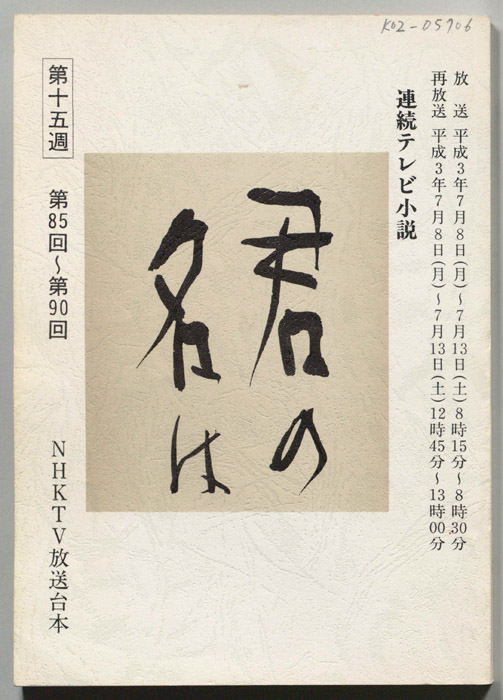 K02-05906
放送 平成3年7月8日(月)〜7月13日(土) 8時15分〜8時30分
再放送 平成3年7月8日(月)〜7月13日(土) 12時45分〜13時00分
連続テレビ小説
君の
名は
第十五週 第85回〜第90回
NHKTV放送台本